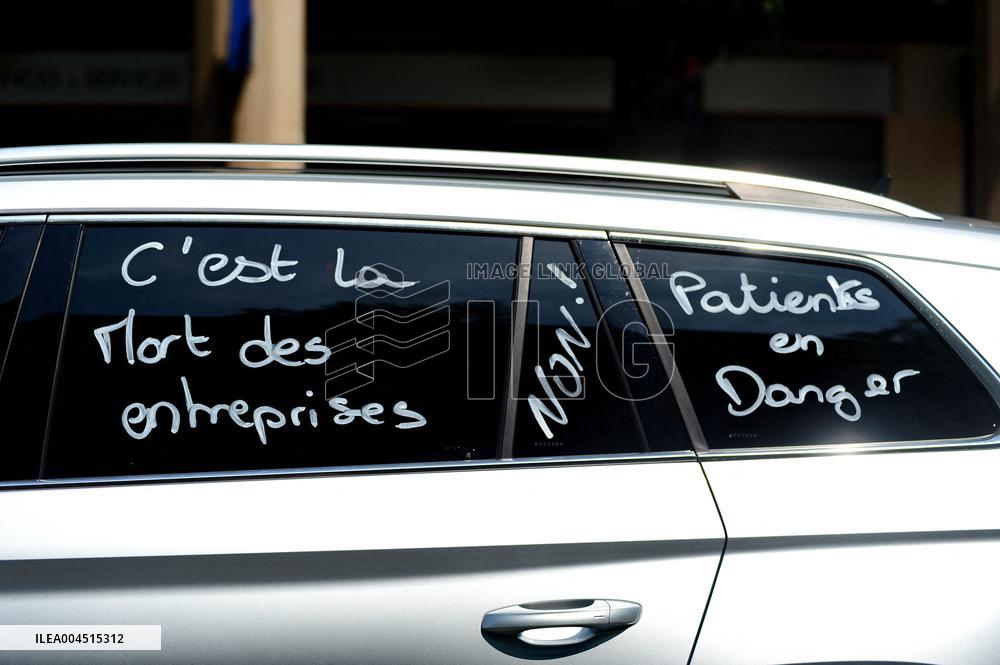 C'est la
Mort des
entreprises
NON!
Patients
en
Danger
IMAGE LINK GLOBAL
ILG
ILEA004515312